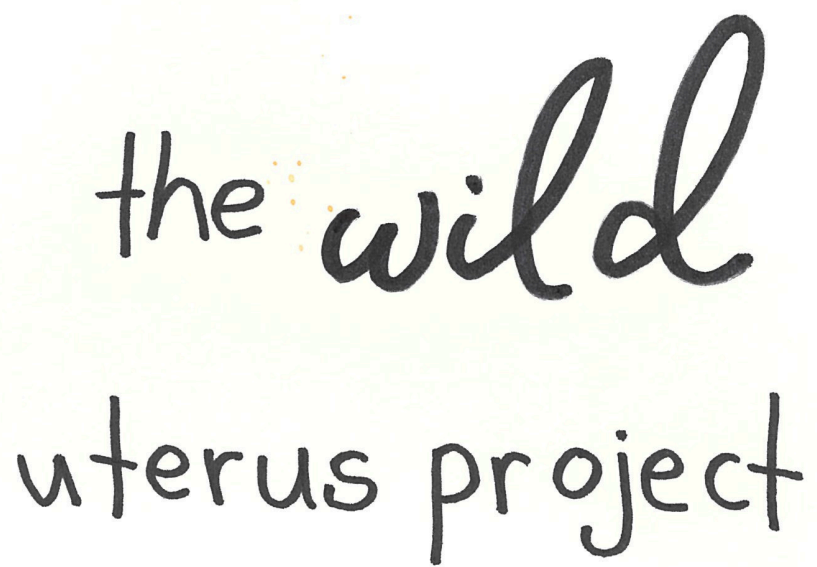 the wild
uterus project